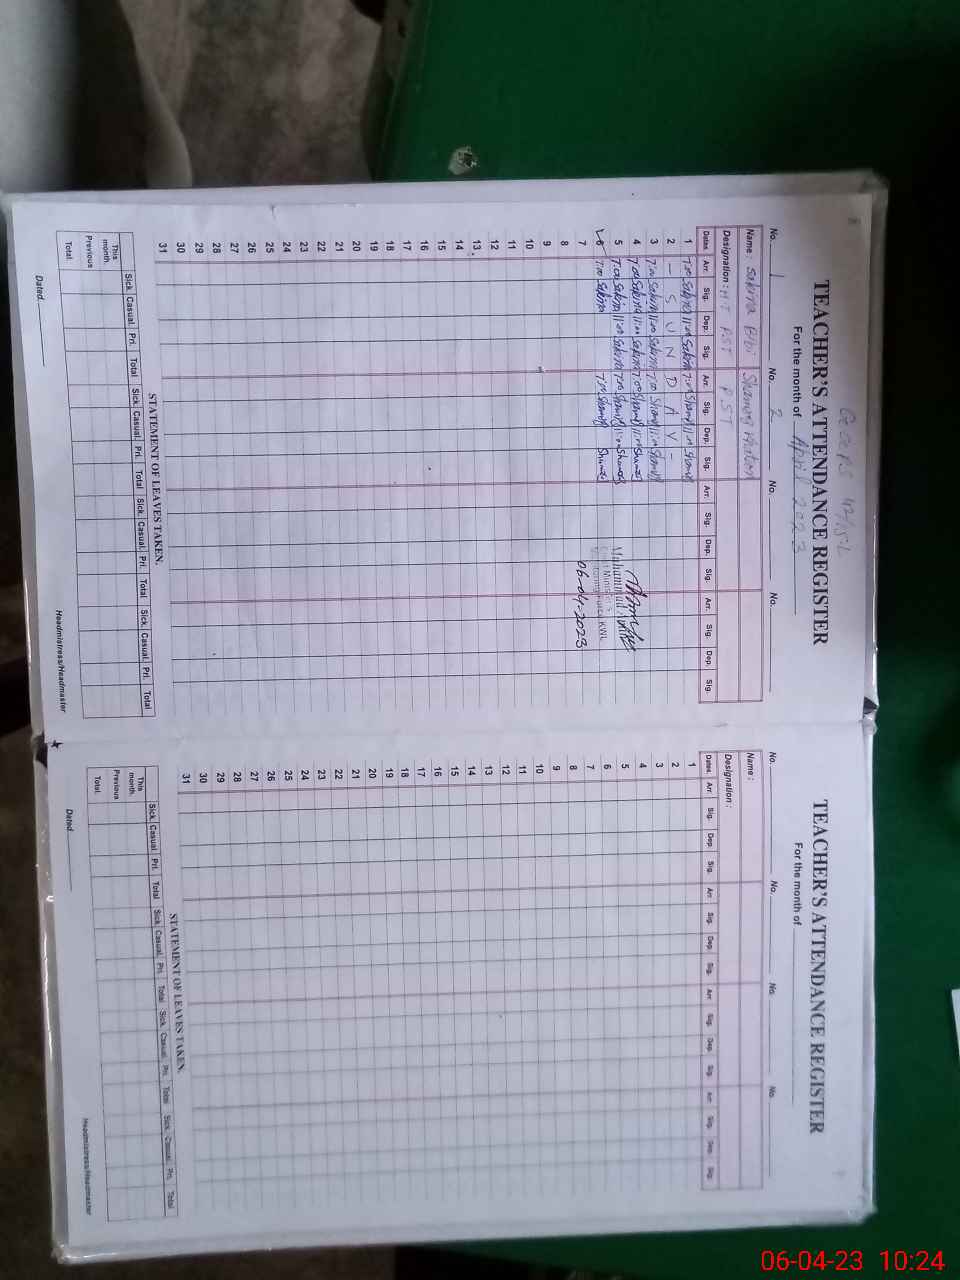 TEACHER'S ATTENDANCE REGISTER
For the month of April 2023
No. 1 No. 2 No. No.
Name: Sakina Bibi
Designation: PST PST
Dates Arr. Sig. Dep. Sig. Arr. Sig. Dep. Sig. Arr. Sig. Dep. Sig. Arr. Sig. Dep. Sig.
1 7:00 Sakina 11:00 Sakina 7:00
2 - S U N D A Y -
3 7:00 Sakina 11:00 Sakina 7:00
4 7:00 Sakina 11:00 Sakina 7:00
5 7:00 Sakina 11:00 Sakina 7:00
6 7:00 Sakina 7:00
7 06-04-2023
8
9
10
11
12
13
14
15
16
17
18
19
20
21
22
23
24
25
26
27
28
29
30
31
STATEMENT OF LEAVES TAKEN.
Sick. Casual. Pri. Total Sick. Casual. Pri. Total Sick. Casual. Pri. Total Sick. Casual. Pri. Total
This month.
Previous
Total.
Dated. Headmistress/Headmaster
TEACHER'S ATTENDANCE REGISTER
For the month of
No. No. No. No.
Name:
Designation:
Dates. Arr. Sig. Dep. Sig. Arr. Sig. Dep. Sig. Arr. Sig. Dep. Sig. Arr. Sig. Dep. Sig.
1
2
3
4
5
6
7
8
9
10
11
12
13
14
15
16
17
18
19
20
21
22
23
24
25
26
27
28
29
30
31
STATEMENT OF LEAVES TAKEN.
Sick. Casual. Pri. Total Sick. Casual. Pri. Total Sick. Casual. Pri. Total Sick. Casual. Pri. Total
This month.
Previous
Total.
Dated. Headmistress/Headmaster
06-04-23 10:24